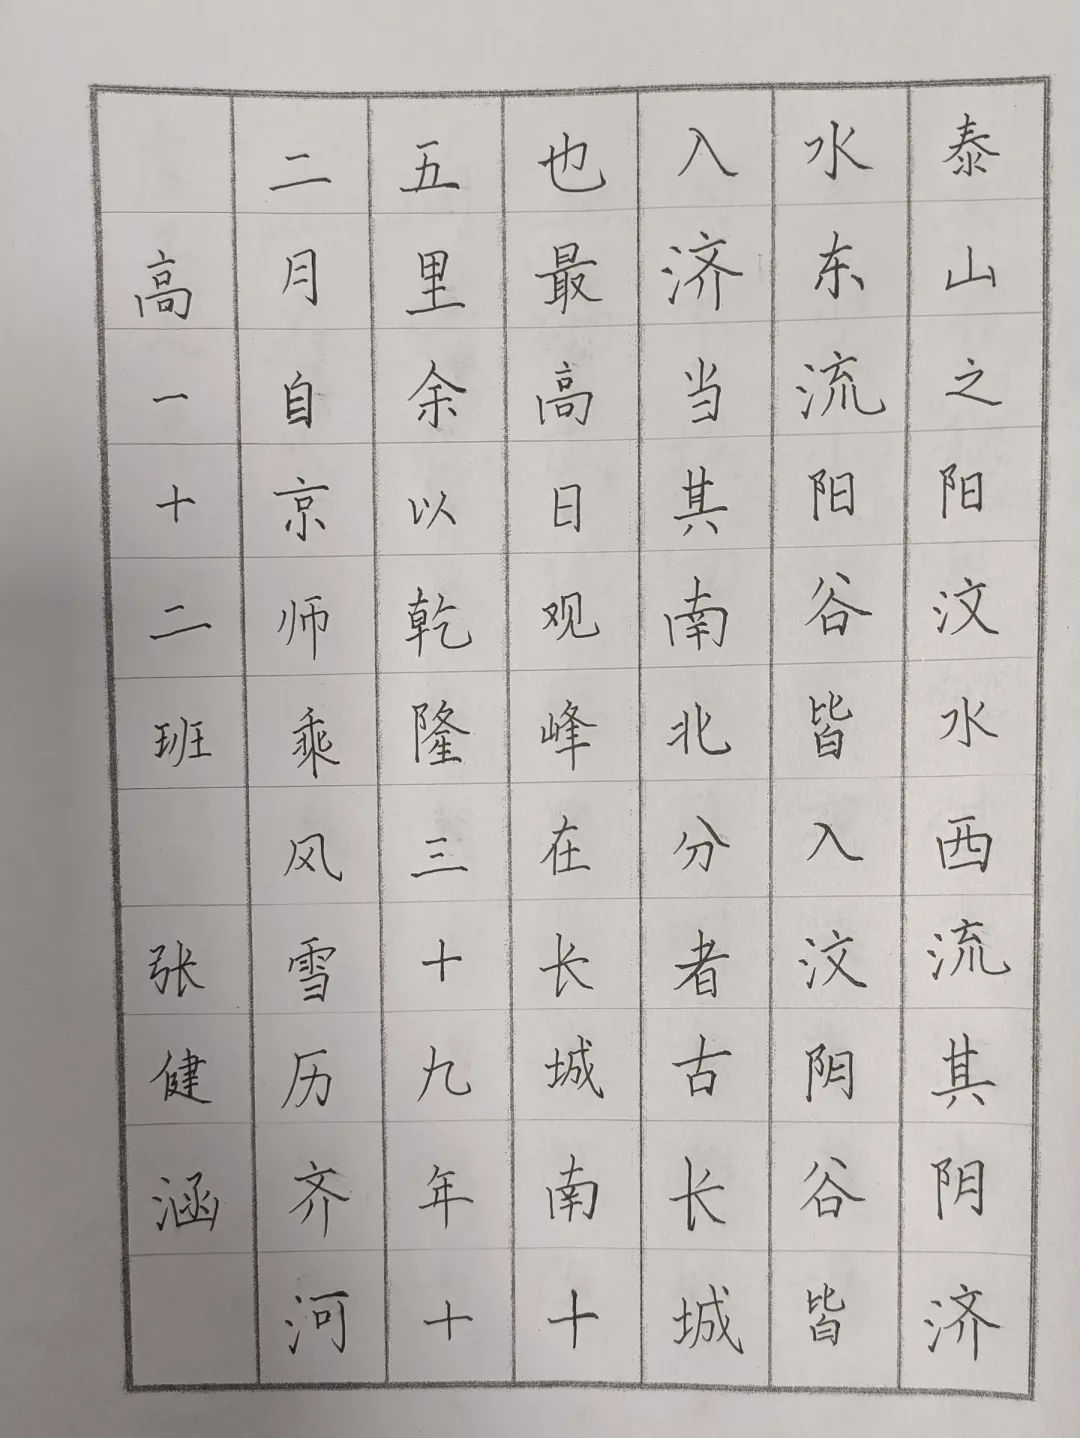 泰山之阳汶水西流其阴济
水东流阳谷皆入汶阴谷皆
入济当其南北分者古长城
也最高日观峰在长城南十
五里余以乾隆三十九年十
二月自京师乘风雪历齐河
高一十二班 张健涵